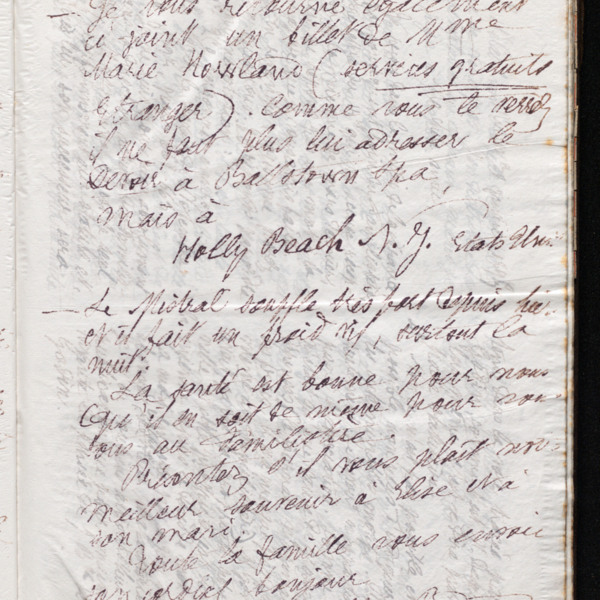 — Je vous retourne également
ci joint un billet de Mme
Marie Howland (services gratuits
Etranger). Comme vous le verrez
il ne faut plus lui adresser le
Devoir à Ballstown Spa,
mais à
Holly Beach N. J. Etats Unis
— Le Mistral souffle très fort depuis hier
et il fait un froid vif, surtout la
nuit.
La santé est bonne pour nous
Qu'il en soit de même pour vous
tous au Familistère.
Présentez s'il vous plait notre
meilleur souvenir à Elise et à
son mari,
Toute la famille vous envoie
son cordial bonjour